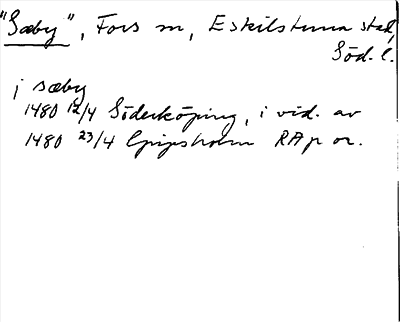 "Sæby", Fors sn, Eskilstuna stad,
Söd. l.
i sæby
1480 12/4 Söderköping, i vid. av
1480 23/4 Gripsholm RAp or.